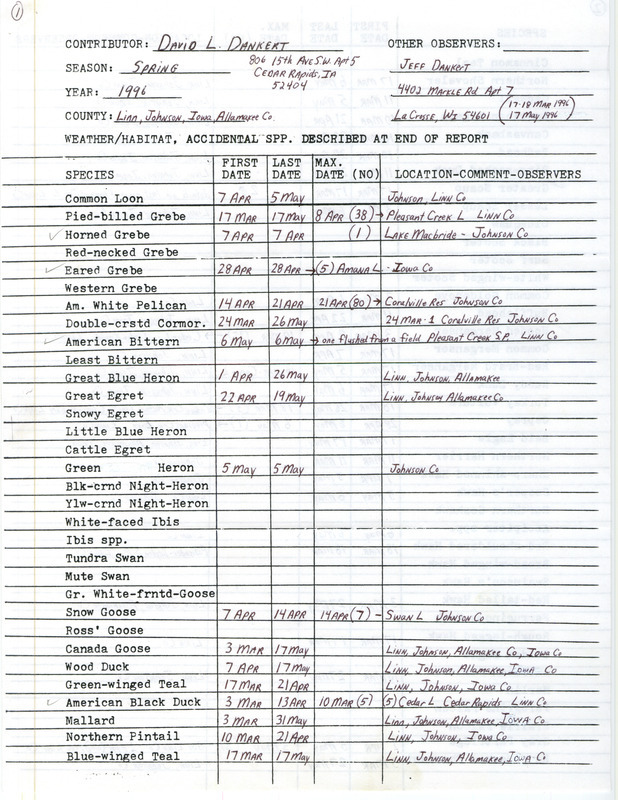 1
CONTRIBUTOR: DAVID L. DANKERT OTHER OBSERVERS:
SEASON: SPRING 806 15th Ave S.W. Apt 5 JEFF DANKERT
CEDAR Rapids, IA
YEAR: 1996 52404 4402 MARKLE Rd Apt 7
COUNTY: Linn, Johnson, Iowa, Allamakee Co. LaCrosse, WI 54601 (17-18 MAR 1996
17 May 1996)
WEATHER/HABITAT, ACCIDENTAL SPP. DESCRIBED AT END OF REPORT
SPECIES FIRST DATE LAST DATE MAX. DATE (NO) LOCATION-COMMENT-OBSERVERS
Common Loon 7 APR 5 May Johnson, Linn Co
Pied-billed Grebe 17 MAR 17 May 8 APR (38) → Pleasant Creek L Linn Co
✓ Horned Grebe 7 APR 7 APR (1) LAKE Macbride - Johnson Co
Red-necked Grebe
✓ Eared Grebe 28 APR 28 APR → (5) Amana L - Iowa Co
Western Grebe
Am. White Pelican 14 APR 21 APR 21 APR (80) → Coralville Res Johnson Co
Double-crstd Cormor. 24 MAR 26 May 24 MAR - 1 Coralville Res Johnson Co
✓ American Bittern 6 May 6 May → one flushed from a field Pleasant Creek S.P. Linn Co
Least Bittern
Great Blue Heron 1 APR 26 May Linn, Johnson, Allamakee
Great Egret 22 APR 19 May Linn, Johnson Allamakee Co
Snowy Egret
Little Blue Heron
Cattle Egret
Green Heron 5 May 5 May Johnson Co
Blk-crnd Night-Heron
Ylw-crnd Night-Heron
White-faced Ibis
Ibis spp.
Tundra Swan
Mute Swan
Gr. White-frntd-Goose
Snow Goose 7 APR 14 APR 14 APR (7) - Swan L Johnson Co
Ross' Goose
Canada Goose 3 MAR 17 May Linn, Johnson, Allamakee Co, Iowa Co
Wood Duck 7 APR 17 May Linn, Johnson, Allamakee, Iowa Co
Green-winged Teal 17 MAR 21 APR Linn, Johnson, Iowa Co
✓ American Black Duck 3 MAR 13 APR 10 MAR (5) (5) Cedar L Cedar Rapids Linn Co
Mallard 3 MAR 31 May Linn, Johnson, Allamakee, Iowa Co
Northern Pintail 10 MAR 21 APR Linn, Johnson, Iowa Co
Blue-winged Teal 17 MAR 17 May Linn, Johnson, Allamakee, Iowa Co